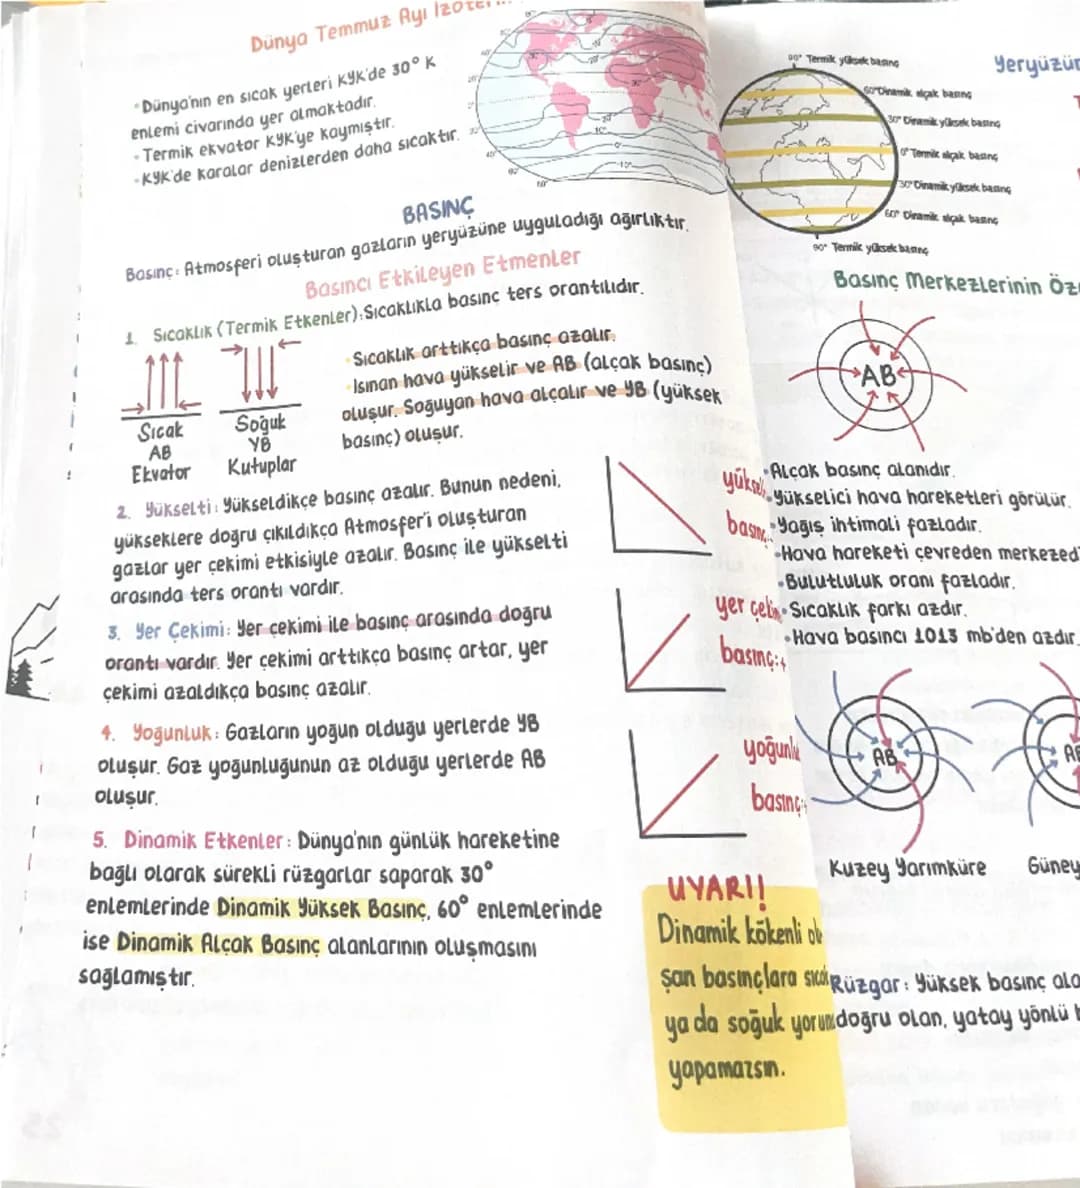 Dünya Temmuz Ayı
• Dünya'nın en sıcak yerleri KYK'de 30° K
enlemi civarında yer almaktadır.
- Termik ekvator KYK'ye kaymıştır.
- KYK'de karalar denizlerden daha sıcaktır.
BASINÇ
Basınç: Atmosferi oluşturan gazların yeryüzüne uyguladığı ağırlıktır.
Basıncı Etkileyen Etmenler
1. Sıcaklık (Termik Etkenler): Sıcaklıkla basınç ters orantılıdır.
Sıcak
AB
Ekvator
Soğuk
YB
Kutuplar
• Sıcaklık arttıkça basınç azalır.
• Isınan hava yükselir ve AB (alçak basınç)
oluşur. Soğuyan hava alçalır ve YB (yüksek
basınç) oluşur.
2. Yükselti: Yükseldikçe basınç azalır. Bunun nedeni,
yükseklere doğru çıkıldıkça Atmosfer'i oluşturan
gazlar yer çekimi etkisiyle azalır. Basınç ile yükselti
arasında ters orantı vardır.
3. Yer Çekimi: Yer çekimi ile basınç arasında doğru
orantı vardır. Yer çekimi arttıkça basınç artar, yer
çekimi azaldıkça basınç azalır.
yer
basınç:+
4. Yoğunluk: Gazların yoğun olduğu yerlerde YB
oluşur. Gaz yoğunluğunun az olduğu yerlerde AB
oluşur.
5. Dinamik Etkenler: Dünya'nın günlük hareketine
bağlı olarak sürekli rüzgarlar saparak 30°
enlemlerinde Dinamik Yüksek Basınç, 60° enlemlerinde
ise Dinamik Alçak Basınç alanlarının oluşmasını
sağlamıştır.
UYARI!
Dinamik kökenli
şan basınçlara
ya da soğuk
yapamazsın.
90° Termik yüksek basınç
60° Dinamik alçak basınç
30° Dinamik yüksek basınç
0° Termik alçak basınç
30° Dinamik yüksek basınç
60° Dinamik alçak basınç
90° Termik yüksek basınç
Basınç Merkezlerinin
AB
• Alçak basınç alanıdır.
• Yükselici hava hareketleri görülür.
• Yağış ihtimali fazladır.
• Hava hareketi çevreden
• Bulutluluk oranı fazladır.
• Sıcaklık farkı azdır.
• Hava basıncı 1013 mb'den azdır.
AB
Kuzey Yarımküre
Güney
Rüzgar: Yüksek basınç
doğru olan, yatay yönlü